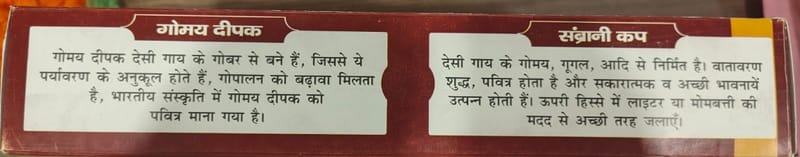 गोमय दीपक
गोमय दीपक देसी गाय के गोबर से बने हैं, जिससे ये
पर्यावरण के अनुकूल होते हैं, गोपालन को बढ़ावा मिलता
है, भारतीय संस्कृति में गोमय दीपक को
पवित्र माना गया है।
संब्रानी कप
देसी गाय के गोमय, गूगल, आदि से निर्मित है। वातावरण
शुद्ध, पवित्र होता है और सकारात्मक व अच्छी भावनायें
उत्पन्न होती हैं। ऊपरी हिस्से में लाइटर या मोमबत्ती की
मदद से अच्छी तरह जलाएँ।